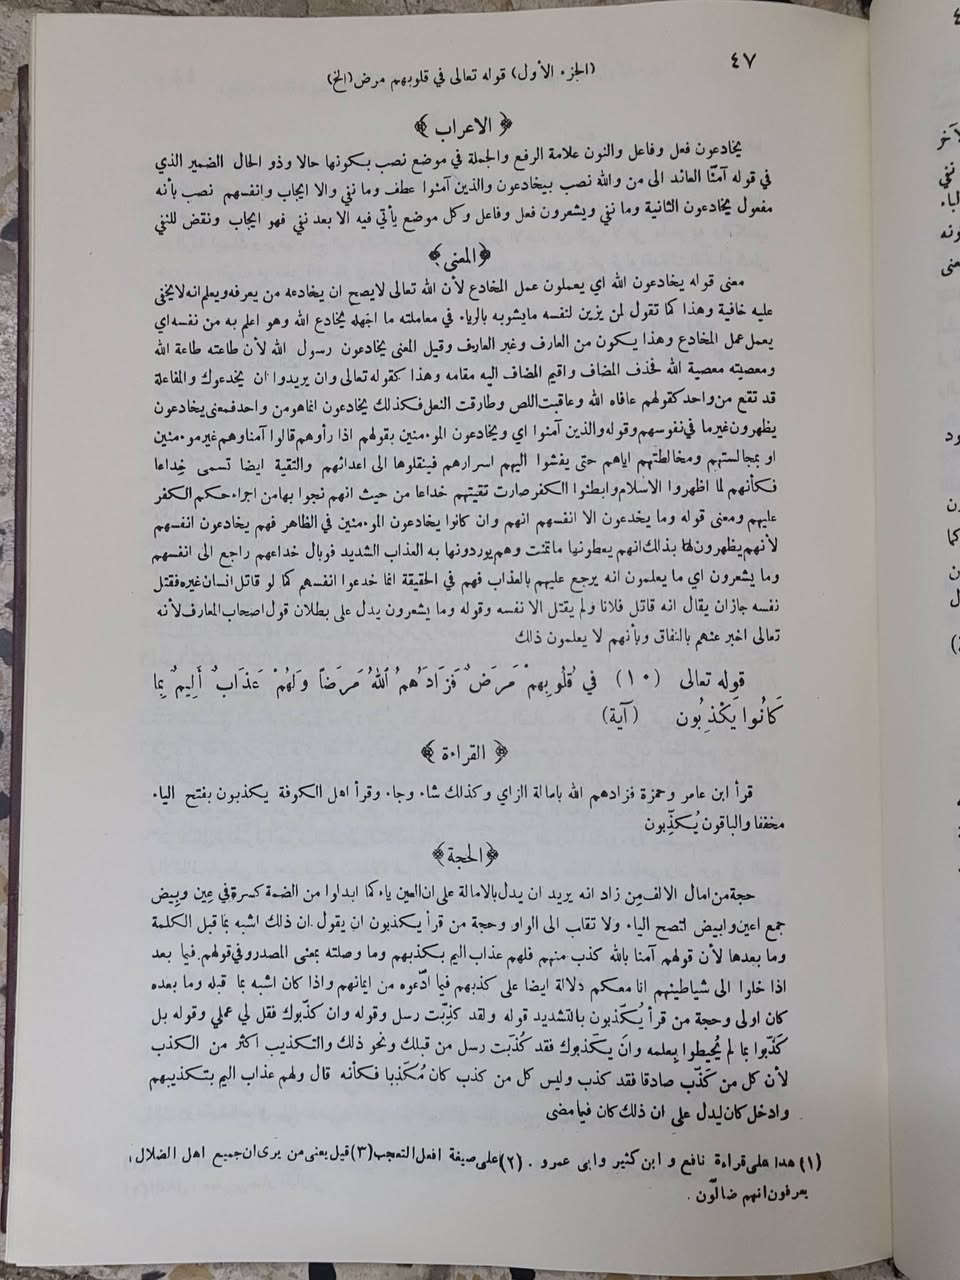 ٤٧
(الجزء الأول) قوله تعالى في قلوبهم مرض (الخ)
﴿ الاعراب ﴾
يخادعون فعل وفاعل والنون علامة الرفع والجملة في موضع نصب بكونها حالا وذو الحال الضمير الذي
في قوله آمنّا العائد الى من والله نصب بيخادعون والذين آمنوا عطف وما نفي والا ايجاب وانفسهم نصب بأنه
مفعول يخادعون الثانية وما نفي ويشعرون فعل وفاعل وكل موضع يأتي فيه الا بعد نفي فهو ايجاب ونقض للنفي
﴿ المعنى ﴾
معنى قوله يخادعون الله اي يعملون عمل المخادع لأن الله تعالى لا يصح ان يخادعه من يعرفه ويعلم انه لا يخفى
عليه خافية وهذا كما تقول لمن يزين لنفسه ما يشوبه بالرياء في معاملته ما اجهله يخادع الله وهو اعلم به من نفسه اي
يعمل عمل المخادع وهذا يكون من العارف وغير العارف وقيل المعنى يخادعون رسول الله لأن طاعته طاعة الله
ومعصيته معصية الله فحذف المضاف واقيم المضاف اليه مقامه وهذا كقوله تعالى وان يريدوا ان يخدعوك والمفاعلة
قد تقع من واحد كقولهم عافاه الله وعاقبت اللص وطارقت النعل فكذلك يخادعون انما هو من واحد فمعنى يخادعون
يظهرون غير ما في نفوسهم وقوله والذين آمنوا اي ويخادعون الموءمنين بقولهم اذا رأوهم قالوا آمنا وهم غير موءمنين
او بمجالستهم ومخالطتهم اياهم حتى يفشوا اليهم اسرارهم فينقلوها الى اعدائهم والتقية ايضا تسمى خِداعا
فكأنهم لما اظهروا الاسلام وابطنوا الكفر صارت تقيتهم خداعا من حيث انهم نجوا بها من اجراء حكم الكفر
عليهم ومعنى قوله وما يخدعون الا انفسهم انهم وان كانوا يخادعون الموءمنين في الظاهر فهم يخادعون انفسهم
لأنهم يظهرون لها بذلك انهم يعطونها ما تمنت وهم يوردونها به العذاب الشديد فوبال خداعهم راجع الى انفسهم
وما يشعرون اي ما يعلمون انه يرجع عليهم بالعذاب فهم في الحقيقة انما خدعوا انفسهم كما لو قاتل انسان غيره فقتل
نفسه جاز ان يقال انه قاتل فلانا ولم يقتل الا نفسه وقوله وما يشعرون يدل على بطلان قول اصحاب المعارف لأنه
تعالى اخبر عنهم بالنفاق وبأنهم لا يعلمون ذلك
قوله تعالى (١٠) فِي قُلُوبِهِمْ مَرَضٌ فَزَادَهُمُ اللهُ مَرَضاً وَلَهُمْ عَذَابٌ أَلِيمٌ بِمَا
كَانُوا يَكْذِبُون (آية)
﴿ القراءة ﴾
قرأ ابن عامر وحمزة فزادهم الله بامالة الزاي وكذلك شاء وجاء وقرأ اهل الكوفة يكذبون بفتح الياء
مخففا والباقون يُكذّبون
﴿ الحجة ﴾
حجة من امال الالف من زاد انه يريد ان يدل بالامالة على ان العين ياء كما ابدلوا من الضمة كسرة في عِين وبِيض
جمع اعين وابيض لتصح الياء ولا تقلب الى الواو وحجة من قرأ يكذبون ان يقول ان ذلك اشبه بما قبل الكلمة
وما بعدها لأن قولهم آمنا بالله كذب منهم فلهم عذاب اليم بكذبهم وما وصلته بمعنى المصدر وفي قولهم فيما بعد
اذا خلوا الى شياطينهم انا معكم دلالة ايضا على كذبهم فيما ادّعوه من ايمانهم واذا كان اشبه بما قبله وما بعده
كان اولى وحجة من قرأ يُكذّبون بالتشديد قوله ولقد كذِّبت رسل وقوله وان كذّبوك فقل لي عملي وقوله بل
كَذّبوا بما لم يُحيطوا بِعلمه وان يكذبوك فقد كُذّبت رسل من قبلك ونحو ذلك والتكذيب اكثر من الكذب
لأن كل من كَذّب صادقا فقد كذب وليس كل من كذب كان مُكَذِبا فكأنه قال ولهم عذاب اليم بتكذيبهم
وادخل كان ليدل على ان ذلك كان فيما مضى
(١) هذا على قراءة نافع و ابن كثير وابى عمرو . (٢) على صيغة افعل التعجب (٣) قيل يعنى من يرى ان جميع اهل الضلال،
يعرفون انهم ضالّون .